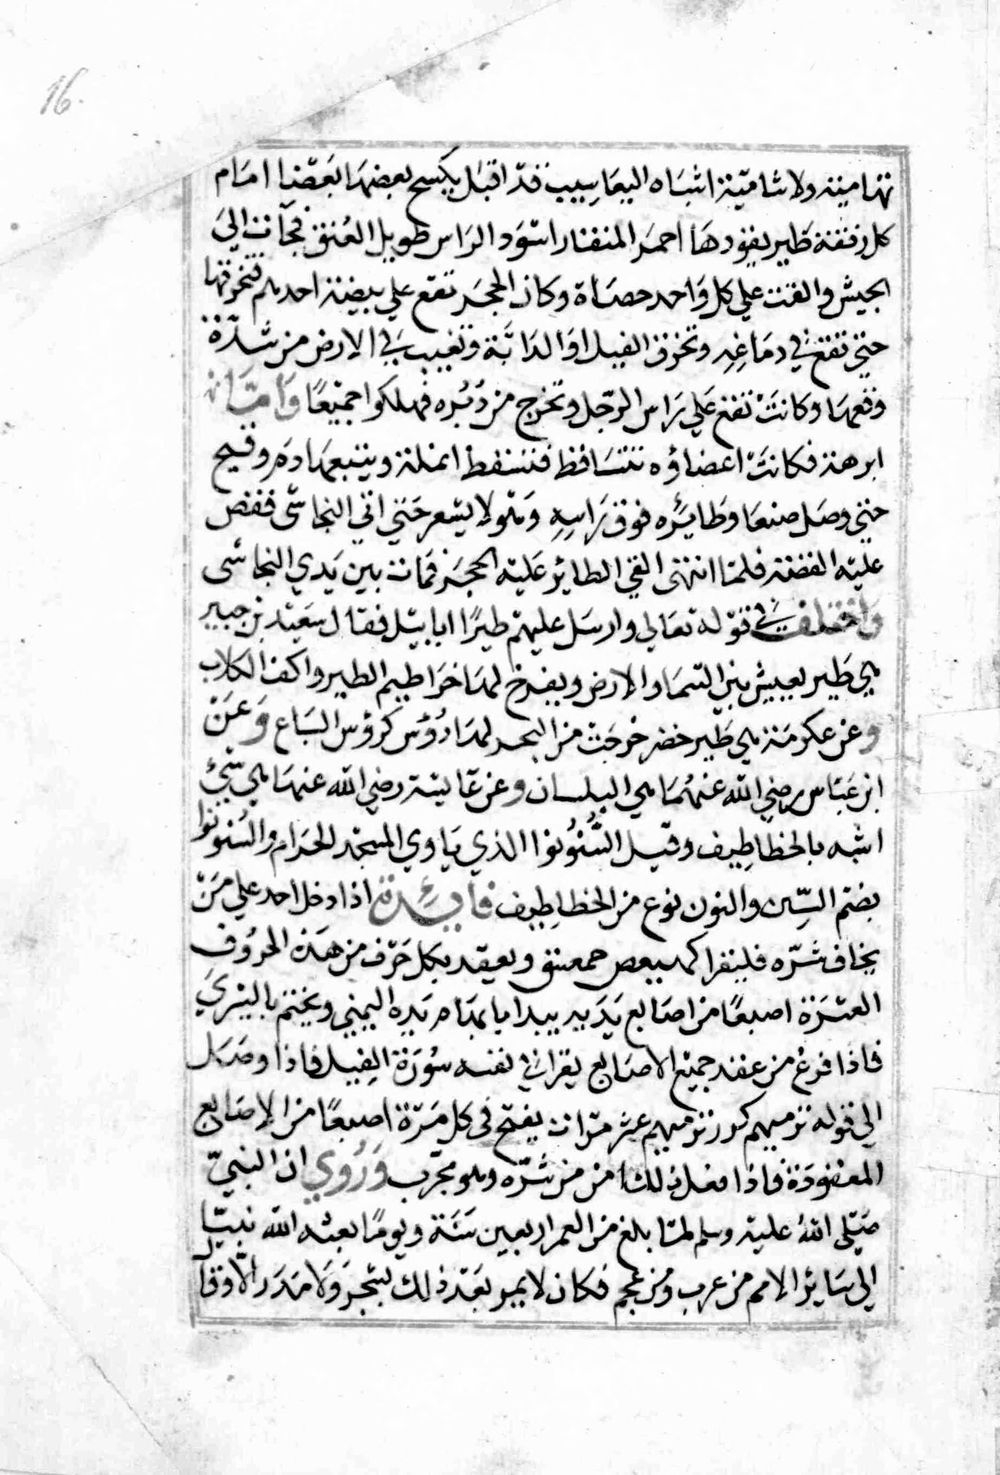 16
تهامية ولا شامية اشباه اليعاسيب قد اقبل يكسح بعضها بعضا امام
كل رفقة طير يقودها احمر المنقار اسود الراس طويل العنق فجآت الى
الجيش والقت علي كل واحد حصاة وكان الحجر تقع علي بيضة احدهم فتخرقها
حتي تقع في دماغه وتخرق الفيل او الدابة وتغيب في الارض من شدة
وقعها وكانت تقع علي راس الرجل وتخرج من دبره فهلكوا جميعًا واما
ابرهة فكانت اعضاؤه تتساقط فتسقط انملة ويتبعها دم وقيح
حتي وصل صنعا وطايره فوق راسه وهو لا يشعر حتي اتي النجاشى فقص
عليه القصة فلما انتهى القي الطائر عليه الحجر فمات بين يدي النجاشى
واختلف في قوله تعالي وارسل عليهم طيرًا ابابيل فقال سعيد بن جبير
هي طير يعيش بين السما والارض ويفرخ لها خراطيم الطير واكف الكلاب
وعن عكرمة هي طير خضر خرجت من البحر لها رؤس كرؤس السباع وعن
ابن عباس رضي الله عنهما هي البلسان وعن عايشة رضي الله عنها هي شئ
اشبه بالخطاطيف وقيل السُّنُونوا الذي ياوي المسجد الحرام والسنونوا
بضم السين والنون نوع من الخطاطيف فائدة اذا دخل احد علي من
يخاف شره فليقرا كهيعص حمعسق ويعقد بكل حرف من هذه الحروف
العشرة اصبعًا من اصابع يديه يبدا بابهام يده اليمني ويختم باليسري
فاذا فرغ من عقد جميع الاصابع يقرا في نفسه سورة الفيل فاذا وصل
الي قوله ترميهم كرر ترميهم عشر مرات يفتح في كل مرة اصبعًا من الاصابع
المعقودة فاذا فعل ذلك امن من شره وهو مجرب وروي ان النبي
صلى الله عليه وسلم لما بلغ من العمر اربعين سنة ويومًا بعثه الله نبيا
الي سائر الامم من عرب ومن عجم فكان لا يمر بعد ذلك بشجر ولا مدر الا وقا